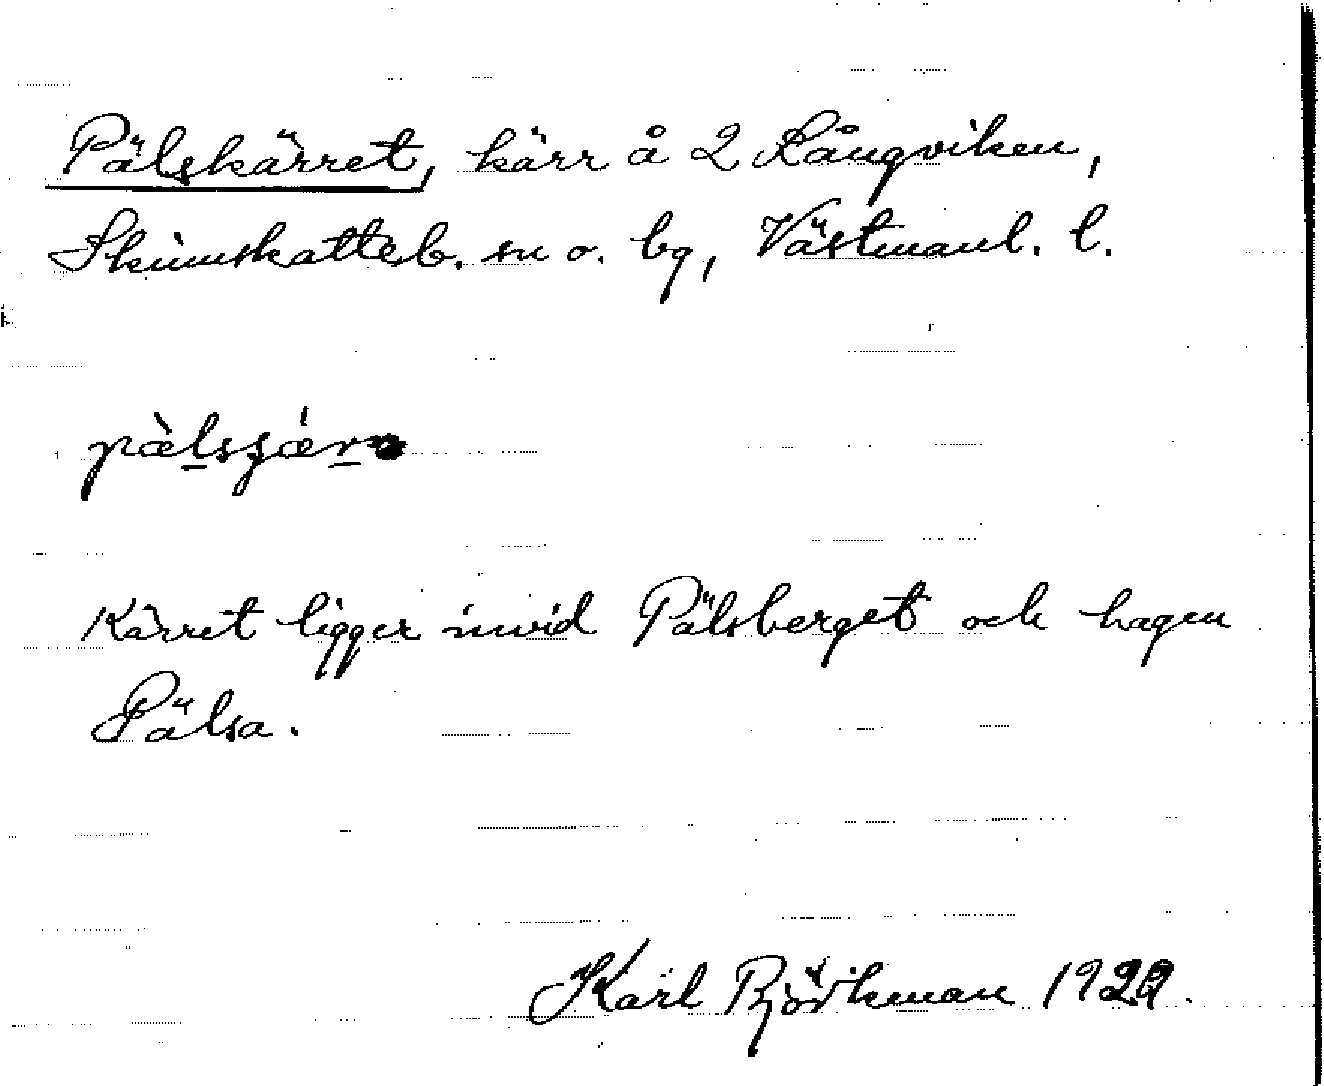 Pälskärret, kärr å 2 Långviken,
Skinnskatteb. sn o. bg, Västmanl. l.
Kärret ligger invid Pälsberget och hagen
Pälsa.
Karl Björkman 1929.